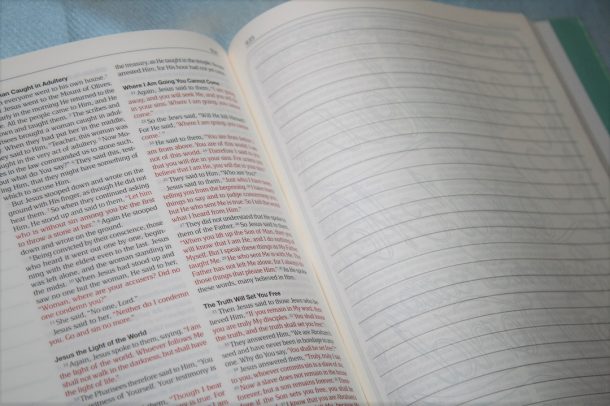 an Caught in Adultery
everyone went to his own house.
Jesus went to the Mount of Olives.
early in the morning He returned to the
e. All the people came to Him, and He
down and taught them. The scribes and
risees brought a woman caught in adul-
. When they had put her in the middle,
ey said to Him, "Teacher, this woman was
aught in the very act of adultery. Now Mo-
es in the law commanded us to stone such,
but what do You say?" They said this, test-
ing Him, that they might have something of
which to accuse Him.
But Jesus stooped down and wrote on the
ground with His finger, as though He did not
hear them. So when they continued asking
Him, He stood up and said to them, "Let him
who is without sin among you be the first
to throw a stone at her." Again He stooped
down and wrote on the ground.
Being convicted by their conscience, those
who heard it went out one by one, begin-
ning with the eldest even to the last. Jesus
was left alone, and the woman standing in
the midst. When Jesus had stood up and
saw no one but the woman, He said to her,
"Woman, where are your accusers? Did no
one condemn you?"
She said, "No one, Lord."
Jesus said to her, "Neither do I condemn
you. Go and sin no more."
Jesus the Light of the World
Again, Jesus spoke to them, saying, "I am
the light of the world. Whoever follows Me
shall not walk in the darkness, but shall have
the light of life."
The Pharisees therefore said to Him, "You
witness of Yourself. Your testimony is
"Though I bear
is true. For
the treasury, as He taught in the temple.
arrested Him, for His hour had not yet come.
Where I Am Going You Cannot Come
Again, Jesus said to them, "I am going
away, and you will seek Me, and you will die
in your sins. Where I am going, you cannot
come."
So the Jews said, "Will He kill Himself?
For He said, 'Where I am going, you cannot
come.'"
He said to them, "You are from below. I
am from above. You are of this world. I am
not of this world. Therefore I said to you
that you will die in your sins. For unless you
believe that I am He, you will die in your sins."
They said to Him, "Who are You?"
Jesus said to them, "Just who I have been
telling you from the beginning. I have many
things to say and to judge concerning you,
but He who sent Me is true. So I tell the world
what I heard from Him."
They did not understand that He spoke to
them of the Father. So Jesus said to them,
"When you lift up the Son of Man, then you
will know that I am He, and I do nothing of
Myself. But I speak these things as My Father
taught Me. He who sent Me is with Me. The
Father has not left Me alone, for I always do
those things that please Him." As He spoke
these words, many believed in Him.
The Truth Will Set You Free
Then Jesus said to those Jews who be-
lieved Him, "If you remain in My word, then
you are truly My disciples. You shall know
the truth, and the truth shall set you free."
They answered Him, "We are Abraham's
seed and have never been in bondage to any-
one. Why do You say, 'You shall be set free'?"
Jesus answered them, "Truly, truly I say
to you, whoever commits sin is a slave of sin.
Now a slave does not remain in the house
forever, but a son remains forever. There-
fore if the Son sets you free, you shall be
I know that you are Abraham's